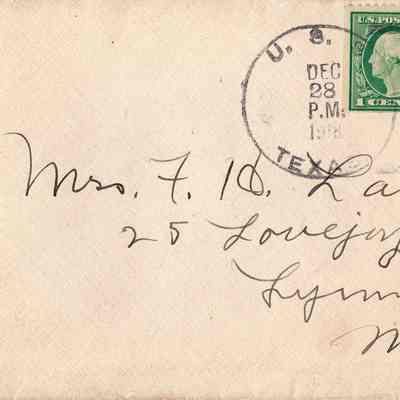 U. S.
DEC
28
P.M.
1918
TEXAS
U.S. POS
1 CEN
Mrs. F. H. La
25 Lovejoy
Lynn
M